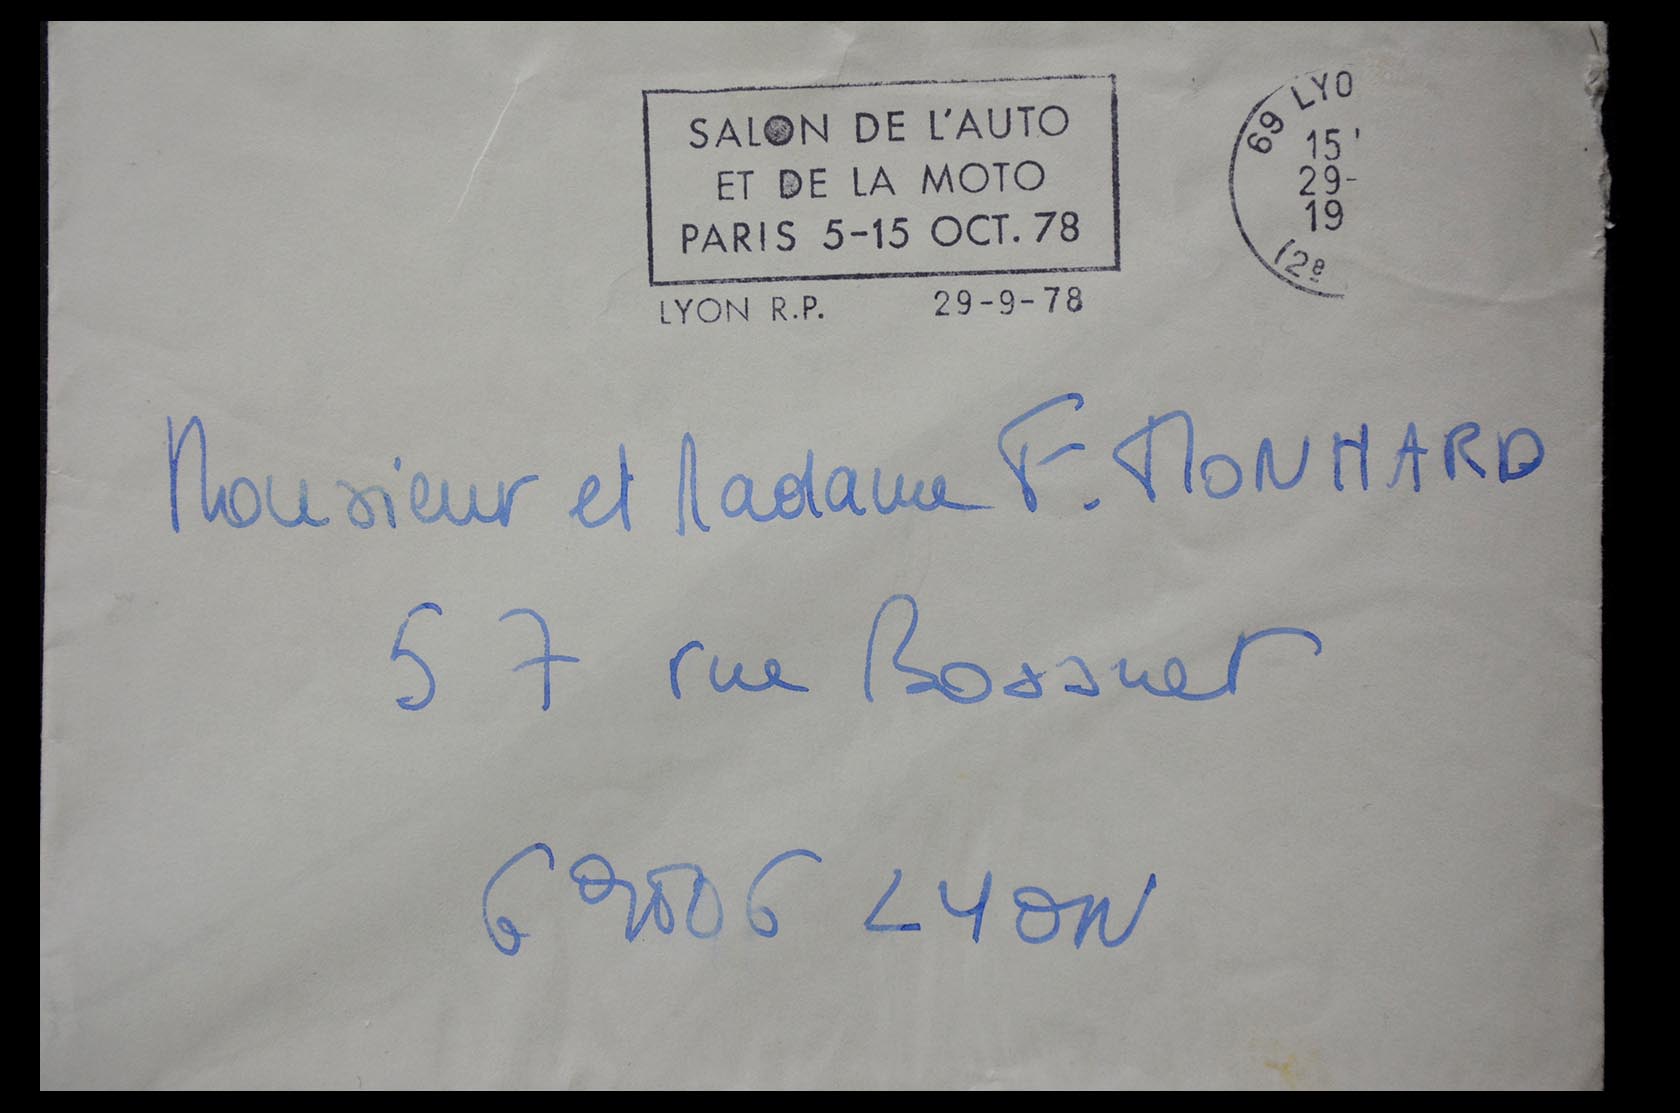 SALON DE L'AUTO
ET DE LA MOTO
PARIS 5-15 OCT. 78
LYON R.P. 29-9-78
69 LYO
15'
29-
19
(2e
Monsieur et Madame F. MONHARD
57 rue Bossuet
69006 LYON